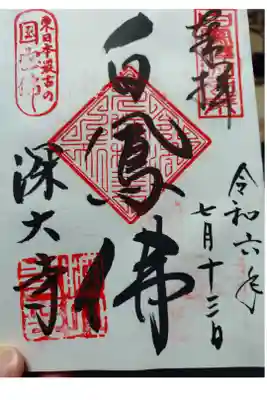 奉拝
令和六年
七月十三日
白鳳佛
東日本最古の
国宝佛
深大寺